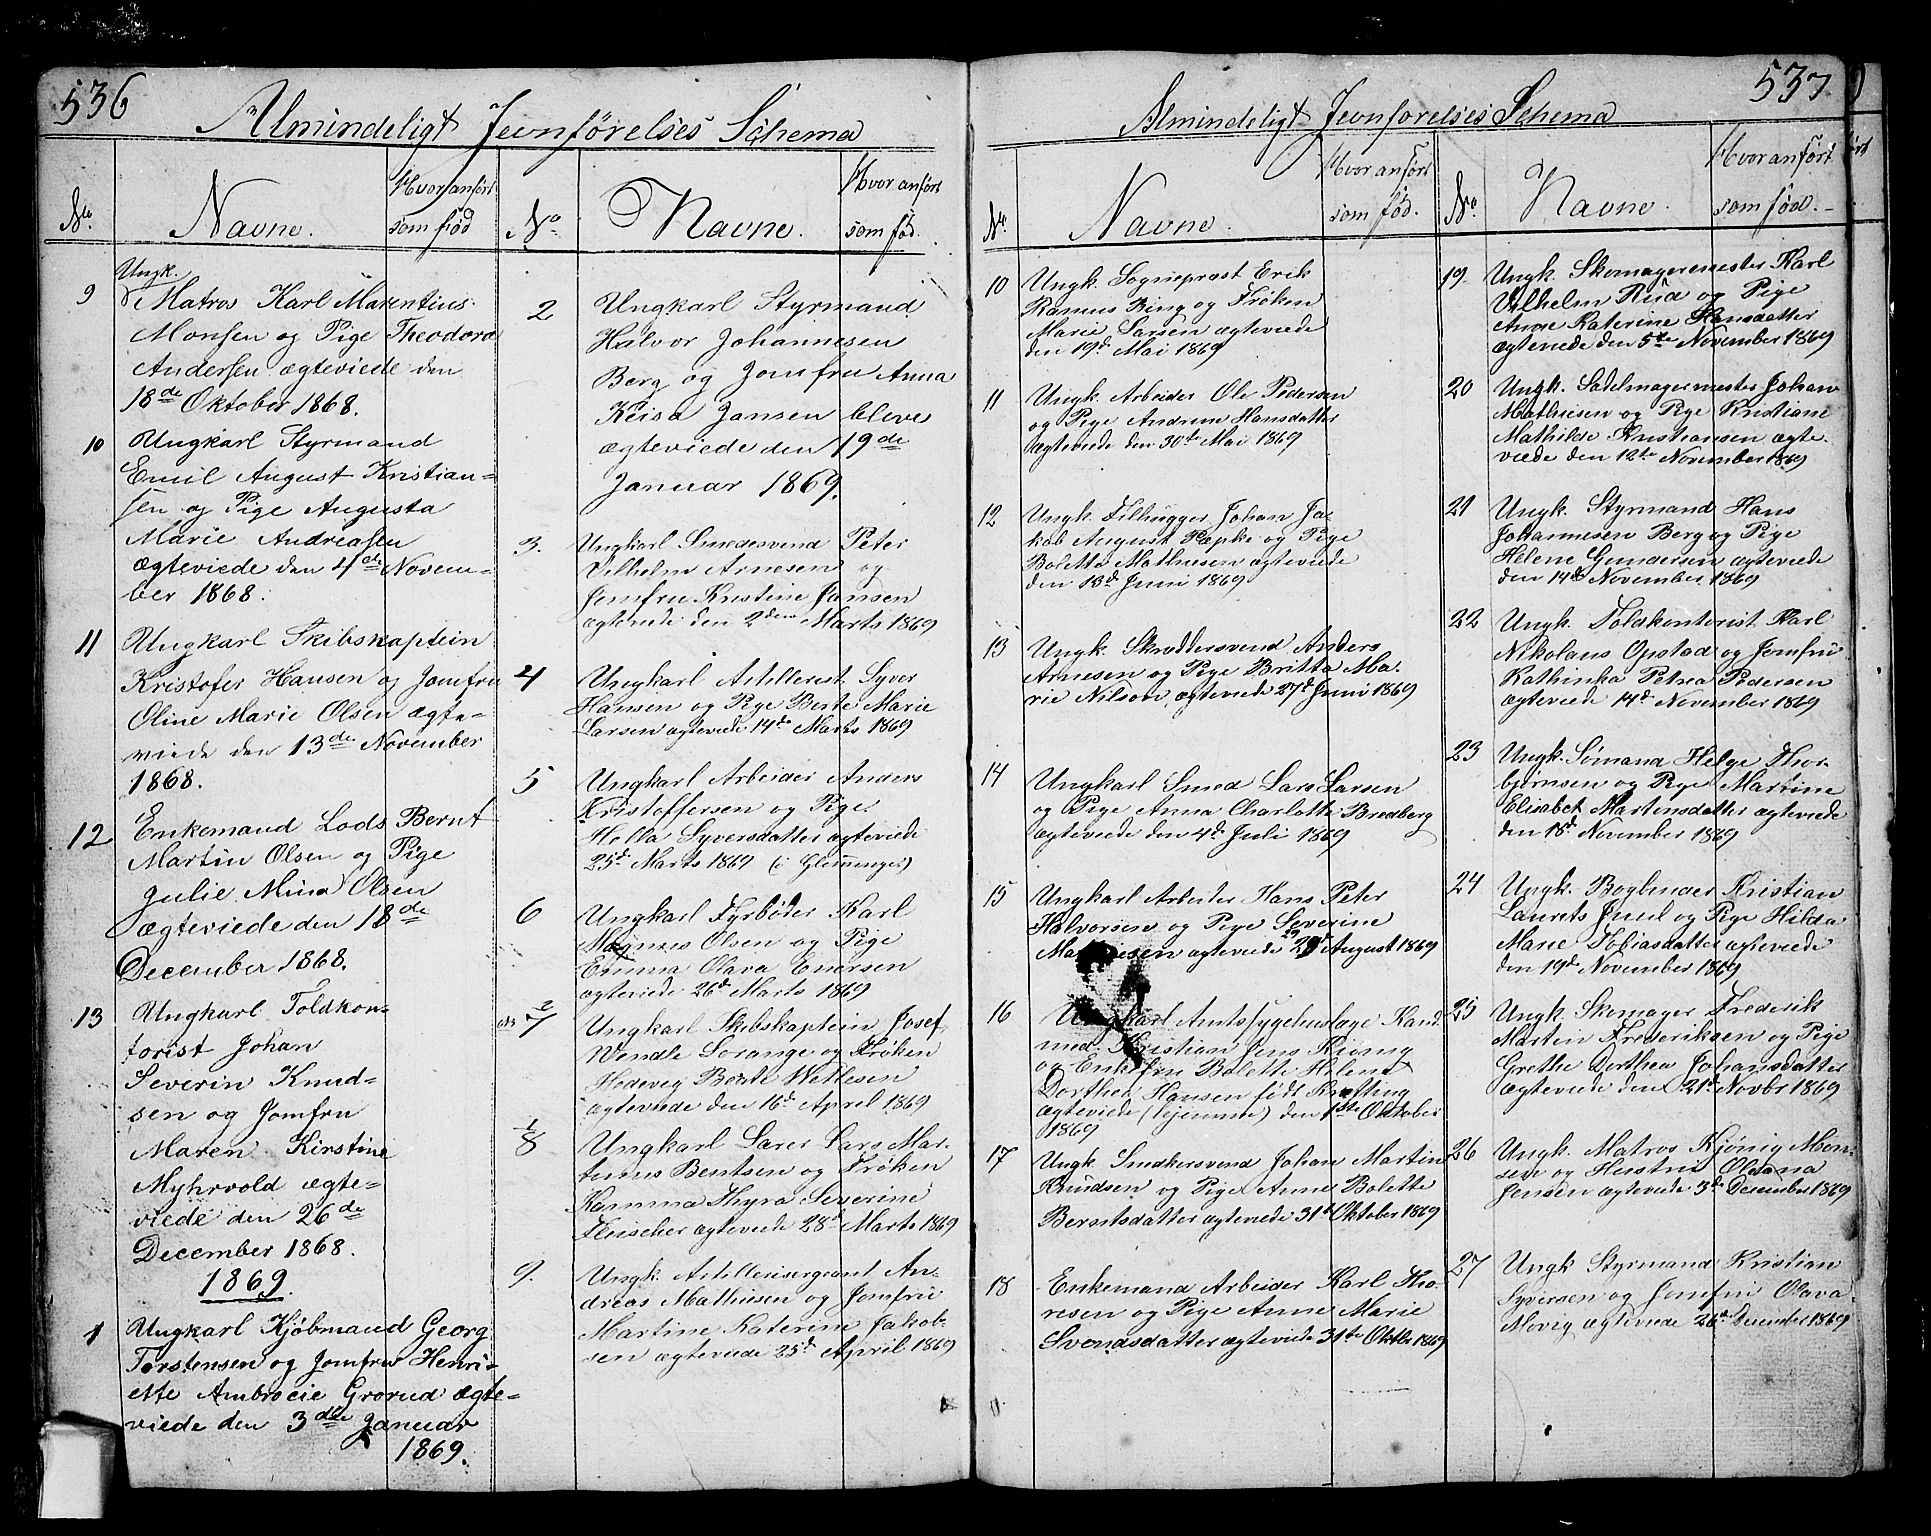 536
Almindeligt Jevnførelses Schema
No. Navne. Hvor anført som fød
9 Ungk.
Matros Karl Maxentius
Monsen og Pige Theodora
Andersen ægteviede den
18de Oktober 1868.
10 Ungkarl Styrmand
Emil August Kristian-
sen og Pige Augusta
Marie Andreasen
ægteviede den 4de Novem-
ber 1868.
11 Ungkarl Skibskaptein
Kristofer Hansen og Jomfru
Oline Marie Olsen ægte-
viede den 13de November
1868.
12 Enkemand Lods Bernt
Martin Olsen og Pige
Julie Mina Olsen
ægteviede den 18de
December 1868.
13 Ungkarl Toldkon-
torist Johan
Severin Knud-
sen og Jomfru
Maren Kirstine
Myhrvold ægte-
viede den 26de
December 1868.
1869.
1 Ungkarl Kjøbmand Georg
Torstensen og Jomfru Henri-
ette Ambrocie Grorud ægte-
viede den 3die Januar
1869.
No. Navne. Hvor anført som fød.
2 Ungkarl Styrmand
Halvor Johannesen
Berg og Jomfru Anna
Kaisa Jansen bleve
ægteviede den 19de
Januar 1869.
3. Ungkarl Smedesvend Peter
Vilhelm Arnesen og
Jomfru Kristine Jansen
ægteviede den 2den Marts 1869
4 Ungkarl Artillerist Syver
Hansen og Pige Berte Marie
Larsen ægteviede 14de Marts 1869
5 Ungkarl Arbeider Anders
Kristoffersen og Pige
Hella Syversdatter ægteviede
25de Marts 1869 (i Glemminge)
6 Ungkarl Fyrbøder Karl
Magnus Olsen og Pige
Emma Olava Enersen
ægteviede 26de Marts 1869
7 Ungkarl Skibskaptein Josef
Wendle Sorange og Frøken
Hedevig Berte Wettesen
ægteviede den 16de April 1869
8 Ungkarl Lærer Lars Mar-
tinus Bentsen og Frøken
Kamma Thyra Severine
Fleischer ægteviede 28de Marts 1869
9. Ungk. Artillerisergeant An-
dreas Mathisen og Jomfru
Martine Katerine Jakob-
sen ægteviede 25de April 1869
537
Almindeligt Jevnførelses Schema
No. Navne. Hvor anført som fød.
10 Ungk. Sogneprest Erik
Rasmus Ring og Frøken
Marie Larsen ægteviede
den 19de Mai 1869
11 Ungk. Arbeider Ole Pedersen
og Pige Andrine Hansdatter
ægteviede den 30te Mai 1869
12 Ungk. Filhugger Johan Ja-
kob August Pæpke og Pige
Bolette Mathiesen ægteviede
den 13de Juni 1869
13 Ungk. Skræddersvend Anders
Arnesen og Pige Britta Ma-
rie Nilson, ægteviede 27de Juni 1869
14 Ungkarl Smed Lars Larsen
og Pige Anna Charlotte Bredberg
ægteviede den 4de Juli 1869
15 Ungkarl Arbeider Hans Peter
Halvorsen og Pige Severine
Mathiesen ægteviede 29 August 1869
16 Ungkarl Amtssygehuslæge Kand.
med. Kristian Jens Kiønig
og Enkefru Bolette Helene
Dorthea Hansen født Krefting
ægteviede (hjemme) den 1ste Oktober
1869
17 Ungk. Smakersvend Johan Martin
Knudsen og Pige Anne Bolette
Berntsdatter ægteviede 31te Oktober 1869
18 Enkemand Arbeider Karl Tho-
resen og Pige Anne Marie
Svendsdatter ægteviede 31te Oktbr 1869
No. Navne. Hvor anført som fød.
19 Ungk. Skomagermester Karl
Vilhelm Rud og Pige
Anne Katerine Hansdatter
ægteviede den 5te November 1869
20 Ungk. Sadelmagermester Johan
Mathiesen og Pige Kristiane
Mathilde Kristiansen ægte-
viede den 12te November 1869
21 Ungk. Styrmand Hans
Johannesen Berg og Pige
Helene Gundersen ægteviede
den 14de November 1869
22 Ungk. Toldkontorist Karl
Nikolaus Opstad og Jomfru
Kathinka Petrea Pedersen
ægteviede 14de November 1869
23 Ungk. Sømand Helge Thor-
bjørnsen og Pige Martine
Elisabet Martensdatter ægteviede
den 18de November 1869
24 Ungk. Bogbinder Kristian
Laurets Juul og Pige Hilda
Marie Tobiasdatter ægteviede
den 19de November 1869
25 Ungk. Skomager Frederik
Martin Frederiksen og Pige
Grethe Dorthea Johansdatter
ægteviede den 21de Novbr 1869
26 Ungk. Matros Kjønig Mon-
sen og Hustru Oldana
Jensen ægteviede 3de Desember 1869
27 Ungk Styrmand Kristian
Syversen og Jomfru Olava
Movig ægteviede 26de December 1869